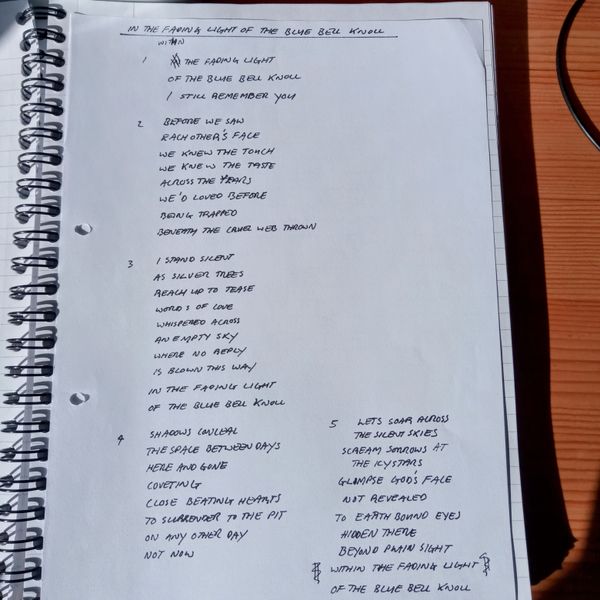 IN THE FADING LIGHT OF THE BLUE BELL KNOLL
WITHIN
1 THE FADING LIGHT
OF THE BLUE BELL KNOLL
I STILL REMEMBER YOU
2 BEFORE WE SAW
EACH OTHER'S FACE
WE KNEW THE TOUCH
WE KNEW THE TASTE
ACROSS THE YEARS
WE'D LOVED BEFORE
BEING TRAPPED
BENEATH THE CRUEL WEB THROWN
3 I STAND SILENT
AS SILVER TREES
REACH UP TO TEASE
WORDS OF LOVE
WHISPERED ACROSS
AN EMPTY SKY
WHERE NO REPLY
IS BLOWN THIS WAY
IN THE FADING LIGHT
OF THE BLUE BELL KNOLL
4 SHADOWS CONCEAL
THE SPACE BETWEEN DAYS
HERE AND GONE
COVETING
CLOSE BEATING HEARTS
TO SURRENDER TO THE PIT
ON ANY OTHER DAY
NOT NOW
5 LETS SOAR ACROSS
THE SILENT SKIES
SCREAM SORROWS AT
THE ICY STARS
GLIMPSE GOD'S FACE
NOT REVEALED
TO EARTH BOUND EYES
HIDDEN THERE
BEYOND PLAIN SIGHT
WITHIN THE FADING LIGHT
OF THE BLUE BELL KNOLL